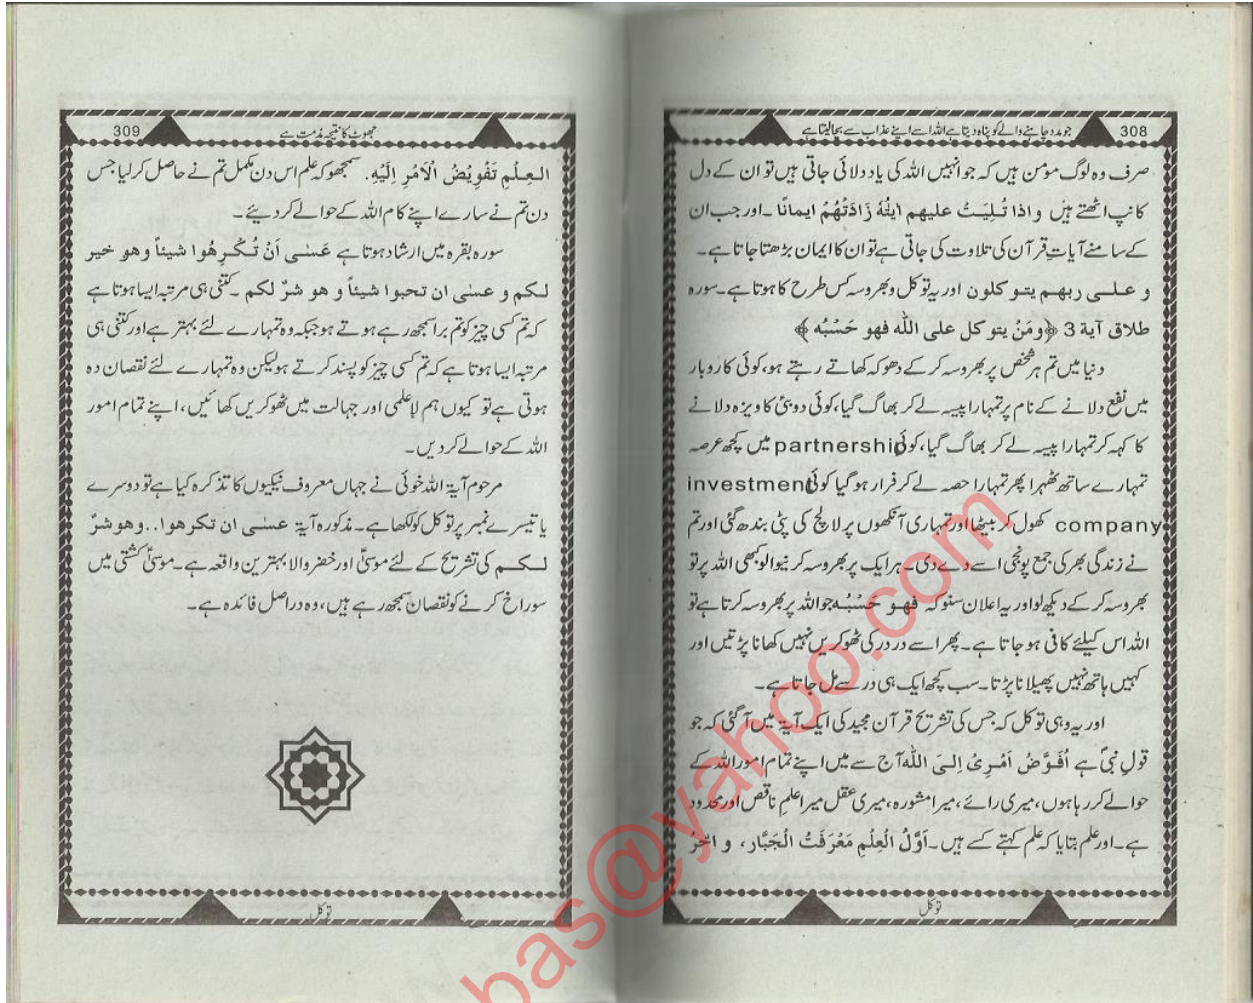 308
جو مدد چاہنے والے کو پناہ دیتا ہے اللہ اسے اپنے عذاب سے بچا لیتا ہے
صرف وہ لوگ مؤمن ہیں کہ جو انہیں اللہ کی یاد دلائی جاتی ہیں تو ان کے دل
کانپ اٹھتے ہیں و اذا تُلِیَتُ علیهم ایٰتُهٗ زَادَتُهُمُ ایمانًا ۔ اور جب ان
کے سامنے آیات قرآن کی تلاوت کی جاتی ہے تو ان کا ایمان بڑھتا جاتا ہے۔
و علی ربهم یتو کلون اور یہ توکل و بھروسہ کس طرح کا ہوتا ہے۔ سورہ
طلاق آیۃ 3 ﴿ومَنُ یتو کل علی اللّٰه فهو حَسُبُه ﴾
دنیا میں تم ہر شخص پر بھروسہ کر کے دھوکہ کھاتے رہتے ہو، کوئی کاروبار
میں نفع دلانے کے نام پر تمہارا پیسہ لے کر بھاگ گیا، کوئی دوبئی کا ویزہ دلانے
کا کہہ کر تمہارا پیسہ لے کر بھاگ گیا، کوئی partnership میں کچھ عرصہ
تمہارے ساتھ ٹھہرا پھر تمہارا حصہ لے کر فرار ہو گیا کوئی investment
company کھول کر بیٹھا اور تمہاری آنکھوں پر لالچ کی پٹی بندھ گئی اور تم
نے زندگی بھر کی جمع پونجی اسے دے دی۔ ہر ایک پر بھروسہ کر نیوالو کبھی اللہ پر تو
بھروسہ کر کے دیکھ لو اور یہ اعلان سنو کہ فهو حَسُبُه جو اللہ پر بھروسہ کرتا ہے تو
اللہ اس کیلئے کافی ہو جاتا ہے۔ پھر اسے در در کی ٹھوکریں نہیں کھانا پڑتیں اور
کہیں ہاتھ نہیں پھیلانا پڑتا۔ سب کچھ ایک ہی در سے مل جاتا ہے۔
اور یہ وہی توکل کہ جس کی تشریح قرآن مجید کی ایک آیۃ میں آ گئی کہ جو
قول نبیؐ ہے اُفَوَّضُ اَمُرِیُ اِلیَ اللّٰه آج سے میں اپنے تمام امور اللہ کے
حوالے کر رہا ہوں، میری رائے، میرا مشورہ، میری عقل میرا علم ناقص اور محدود
ہے۔ اور علم بتایا کہ علم کہتے کسے ہیں۔ اَوَّلُ الُعِلُمِ مَعُرَفَتُ الُجَبَّار، و اٰخرُ
توکل
309
جھوٹ کا نتیجہ مذمت ہے
العِلُمِ تَفُوِیُضُ الُاَمُرِ اِلَیُهِ۔ سمجھو کہ علم اس دن مکمل تم نے حاصل کر لیا جس
دن تم نے سارے اپنے کام اللہ کے حوالے کر دیئے۔
سورہ بقرہ میں ارشاد ہوتا ہے عَسٰی اَنُ تُکُرِهُوا شیئاً وهو خیر
لکم و عسٰی ان تحبوا شیئاً و هو شرٌ لکم ۔ کتنی ہی مرتبہ ایسا ہوتا ہے
کہ تم کسی چیز کو تم برا سمجھ رہے ہوتے ہو جبکہ وہ تمہارے لئے بہتر ہے اور کتنی ہی
مرتبہ ایسا ہوتا ہے کہ تم کسی چیز کو پسند کرتے ہو لیکن وہ تمہارے لئے نقصان دہ
ہوتی ہے تو کیوں ہم لاعلمی اور جہالت میں ٹھوکریں کھائیں، اپنے تمام امور
اللہ کے حوالے کر دیں۔
مرحوم آیۃ اللہ خوئی نے جہاں معروف نیکیوں کا تذکرہ کیا ہے تو دوسرے
یا تیسرے نمبر پر توکل کو لکھا ہے۔ مذکورہ آیۃ عسٰی ان تکرهوا.. وهو شرٌ
لکم کی تشریح کے لئے موسیٰؑ اور خضر والا بہترین واقعہ ہے۔ موسیٰؑ کشتی میں
سوراخ کرنے کو نقصان سمجھ رہے ہیں، وہ در اصل فائدہ ہے۔
توکل
bas@yahoo.com